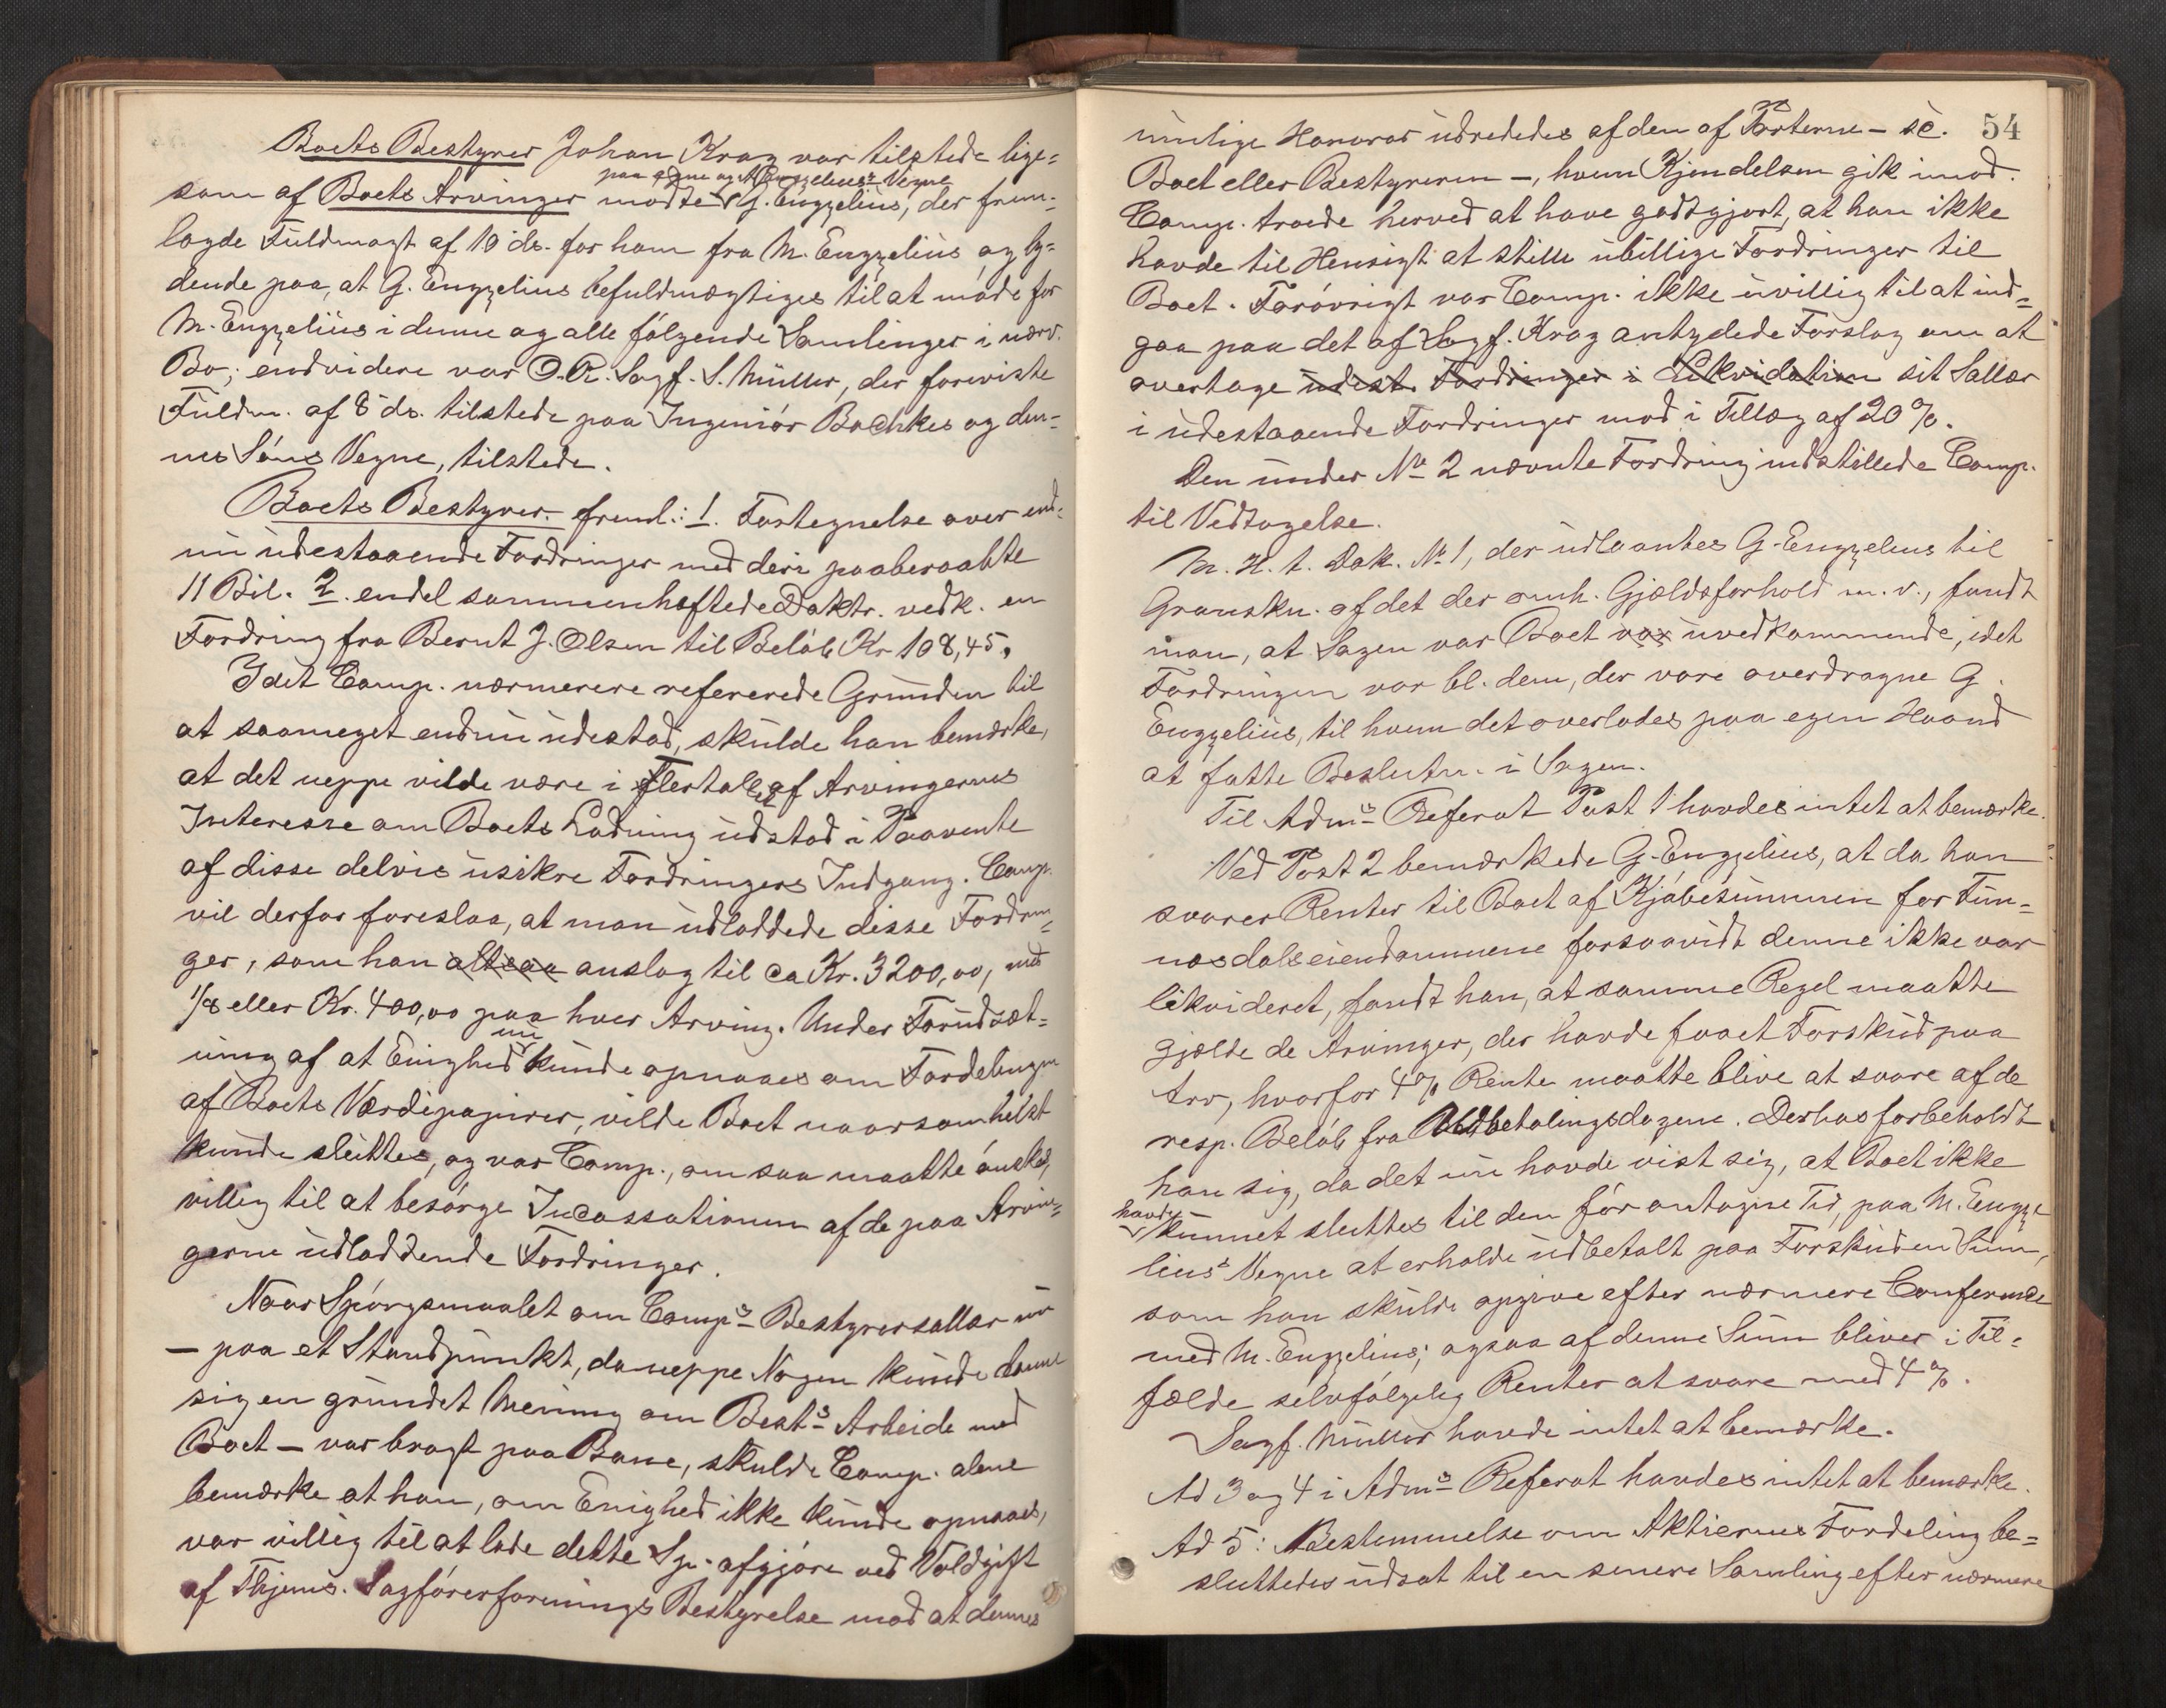 Boets Bestyrer Johan Krag var tilstede lige=
paa egne og M. Engzelius's Vegne
som af Boets Arvinger mødte G. Engzelius, der frem-
lagde Fuldmagt af 10 ds. for ham fra M. Engzelius og ly=
dende paa, at G. Engzelius befuldmægtiges til at møde for
M. Engzelius i denne og alle følgende Samlinger i nærv.
Bo; endvidere var O.R. Sagf. S. Müller, der foreviste
Fuldm. af 8 ds. tilstede paa Ingeniør Bachkes og den-
nes Søns Vegne, tilstede.
Boets Bestyrer. freml.: 1. Fortegnelse over end-
nu udestaaende Fordringer med deri paaberaabte
11 Bil. 2. endel sammenheftede Doktr. vedk. en
Fordring fra Bernt J. Olsen til Beløb Kr 108,45.
Idet Comp. nærmerere refererede Grunden til
at saameget endnu udestod, skulde han bemærke,
at det neppe vilde være i Flertallet af Arvingernes
Interesse om Boets Ladning udstod i Paavente
af disse delvis usikre Fordringers Indgang. Comp.
vil derfor foreslaa, at man udloddede disse Fordrin=
ger, som han altsaa anslog til ca Kr. 3200,00, med
1/8 eller Kr. 400,00 paa hver Arving. Under Forudsæt=
ning af at Enighed nu kunde opnaaes om Fordelingen
af Boets Værdipapirer, vilde Boet naarsomhelst
kunde sluttes, og var Comp., om saa maatte ønskes,
villig til at besørge Incassationen af de paa Arvin=
gerne udloddende Fordringer.
Naar Spørgsmaalet om Comp's Bestyrersallær nu
— paa et Standpunkt, da neppe Nogen kunde danne
sig en grundet Mening om Best's Arbeide med
Boet — var bragt paa Bane, skulde Comp. alene
bemærke at han, om Enighed ikke kunde opnaaes,
var villig til at lade dette Sp. afgjøre ved Voldgift
af Thjems. Sagførerforenings Bestyrelse mod at dennes
54
mulige Honorar udrededes af den af Parterne – se.
Boet eller Bestyreren –, hvem Kjendelsen gik imod.
Comp. troede herved at have godtgjort, at han ikke
havde til Hensigt at stille ubillige Fordringer til
Boet. Forøvrigt var Comp. ikke uvillig til at ind=
gaa paa det af Sagf. Krag antydede Forslag om at
overtage udest. Fordringer i Likvidation sit Sallær
i udestaaende Fordringer mod i Tillæg af 20 %.
Den under No 2 nævnte Fordring indstillede Comp.
til Vedtagelse.
M. H. t. Dok. No 1, der udlaantes G. Engzelius til
Granskn. af det der omh. Gjældsforhold m. v., fandt
man, at Sagen var Boet var uvedkommende, idet
Fordringen var bl. dem, der vare overdragne G.
Engzelius, til hvem det overlodes paa egen Haand
at fatte Beslutn. i Sagen.
Til Adm's Referat Post 1 havdes intet at bemærke.
Ved Post 2 bemærkede G. Engzelius, at da han
svarer Renter til Boet af Kjøbesummen for Tun=
nesdalseiendommene forsaavidt denne ikke var
likvideret, fandt han, at samme Regel maatte
gjælde de Arvinger, der havde faaet Forskud paa
Arv, hvorfor 4 % Rente maatte blive at svare af de
resp. Beløb fra Udbetalingsdagene. Derhos forbeholdt
han sig, da det nu havde vist sig, at Boet ikke
havde kunnet sluttes til den før antagne Tid, paa M. Engze
lius's Vegne at erholde udbetalt paa Forskud en Sum,
som han skulde opgive efter nærmere Conference
med M. Engzelius; ogsaa af denne Sum bliver i Til=
fælde selvfølgelig Renter at svare med 4 %.
Sagf. Müller havde intet at bemærke.
Ad 3 og 4 i Adm's Referat havdes intet at bemærke.
Ad 5: Bestemmelse om Aktiernes Fordeling be=
sluttedes udsat til en senere Samling efter nærmere